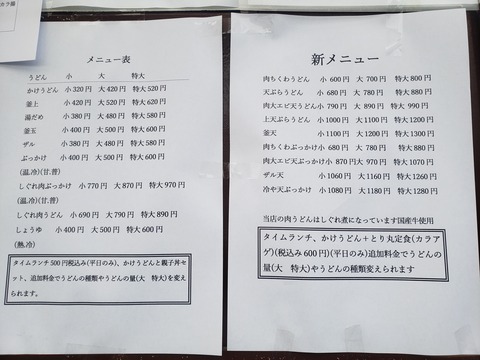 カラ揚
メニュー表
うどん 小 大 特大
かけうどん 小320円 大420円 特大520円
釜上 小420円 大520円 特大620円
湯だめ 小380円 大480円 特大580円
釜玉 小400円 大500円 特大600円
ザル 小380円 大480円 特大580円
ぶっかけ 小400円 大500円 特大600円
(温,冷)(甘.普)
しぐれ肉ぶっかけ 小770円 大870円 特大970円
(温,冷)(甘.普)
しぐれ肉うどん 小690円 大790円 特大890円
しょうゆ 小400 大500円 特大600円
(熱,冷)
タイムランチ500円税込み(平日のみ)、かけうどんと親子丼セ
ット、追加料金でうどんの種類やうどんの量(大 特大)を変え
られます。
新メニュー
肉ちくわうどん 小600円 大700円 特大800円
天ぷらうどん 小680円 大780円 特大880円
肉大エビ天うどん 小790円 大890円 特大990円
上天ぷらうどん 小1000円 大1100円 特大1200円
釜天 小1100円 大1200円 特大1300円
肉ちくわぶっかけ 小680円 大780円 特大880円
肉大エビ天ぶっかけ 小870円 大970円 特大1070円
ザル天 小1060円 大1160円 特大1260円
冷や天ぶっかけ 小1080円 大1180円 特大1280円
当店の肉うどんはしぐれ煮になっています国産牛使用
タイムランチ、かけうどん＋とり丸定食(カラア
ゲ)(税込み600円)(平日のみ)追加料金でうどんの
量(大 特大)やうどんの種類変えられます